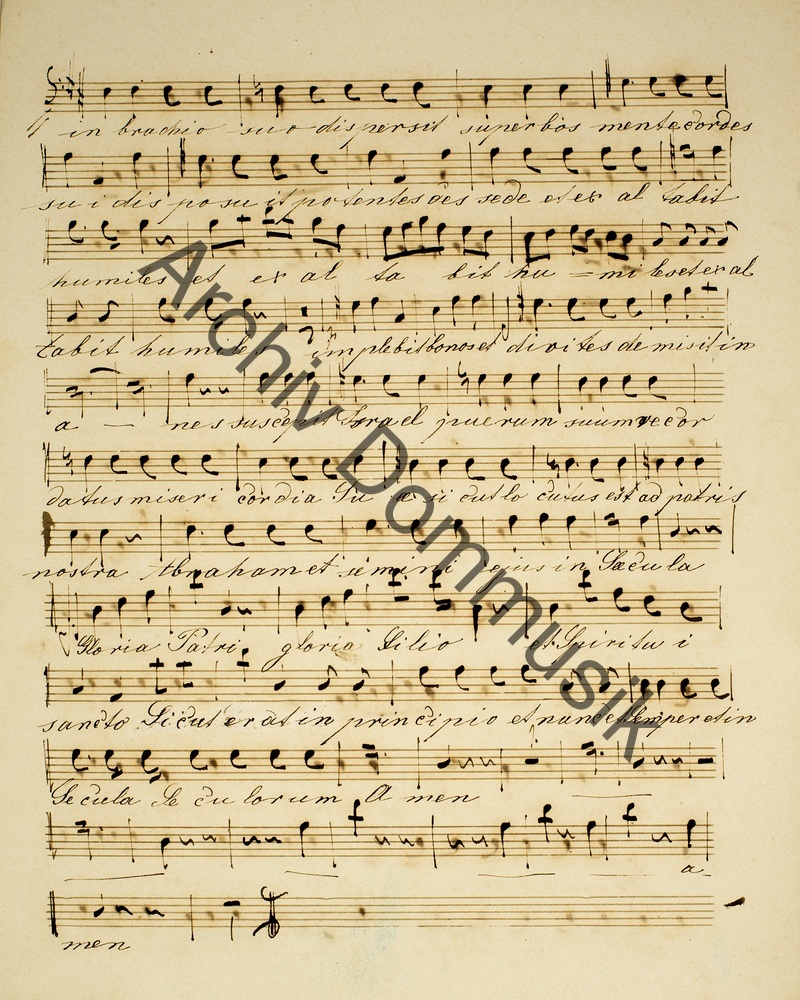 in brachio suo dispersit superbos mente cordes
su i dis po su it potentes des sede et ex al tabit
humiles et ex al ta bit hu = mi les et ex al
tabit humiles implebit bonos et divites de misit in
a — nes suscepit Israel puerum suum recor
datus miseri cordia Su æ si cut lo cutus est ad patris
nostra Abraham et semini ejus in Sæcu la
Gloria Patri, gloria Filio et Spiritu i
sancto Sicut erat in principio et nunc et semper et in
Secula Se cu lorum A men
a-
men
Archiv Dommusik